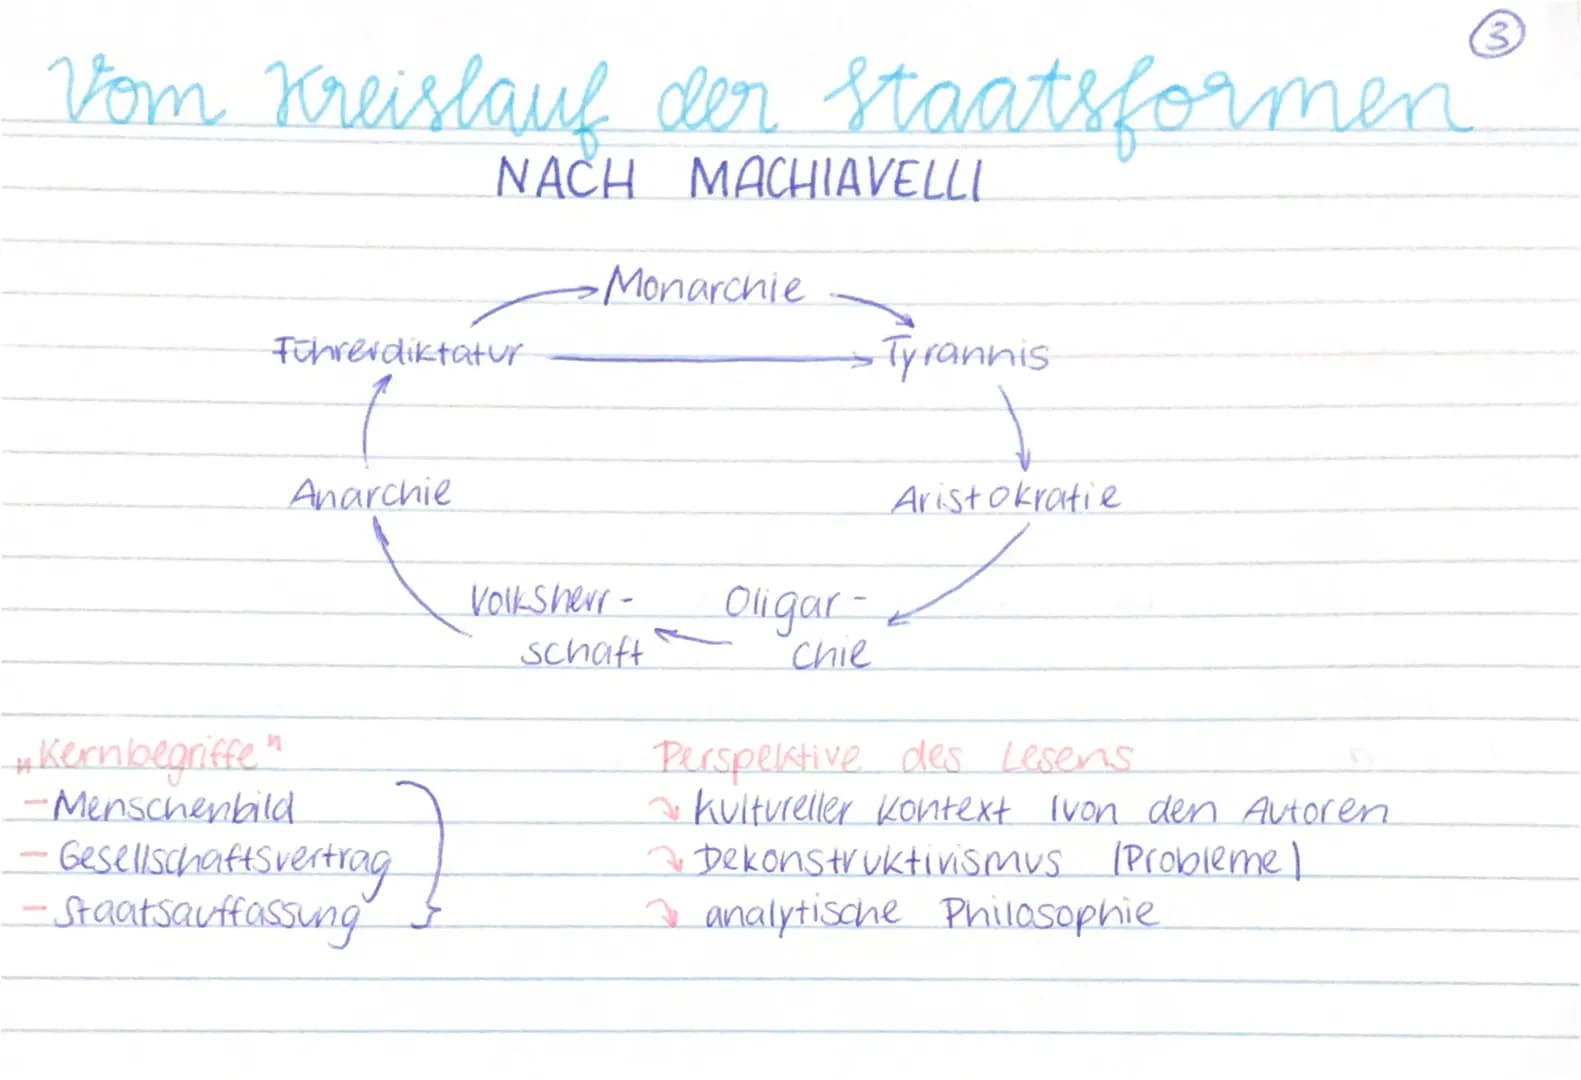 3
Vom Kreislauf der Staatsformen
NACH MACHIAVELLI
Monarchie
Führerdiktatur
Tyrannis
Anarchie
Aristokratie
Volksherr-
schaft
Oligar-
chie
"Kernbegriffe"
- Menschenbild
- Gesellschaftsvertrag
- Staatsauffassung
Perspektive des Lesens
kultureller Kontext (von den Autoren
Dekonstruktivismus (Probleme)
analytische Philosophie